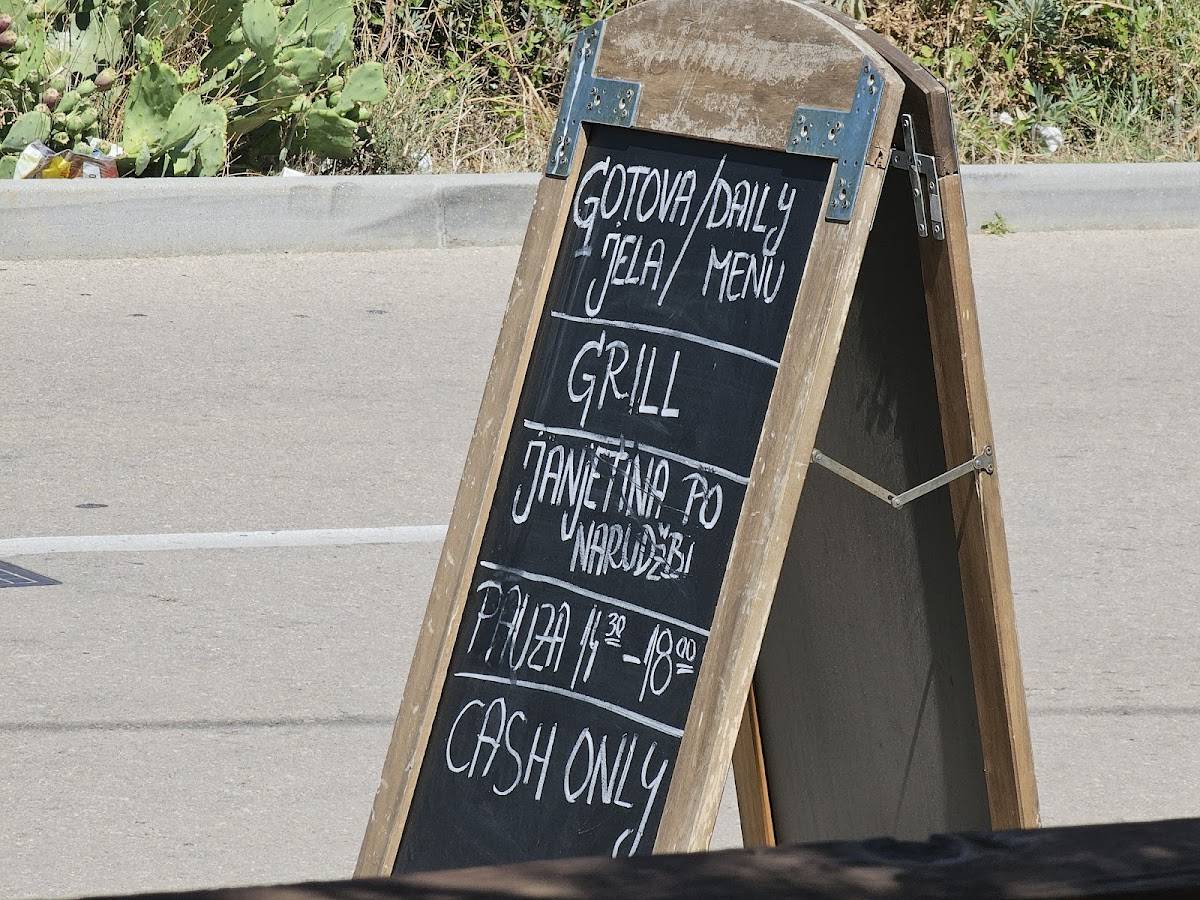 GOTOVA / DAILY
JELA / MENU
GRILL
JANJETINA PO
NARUDŽBI
PAUZA 14³⁰ - 18⁰⁰
CASH ONLY